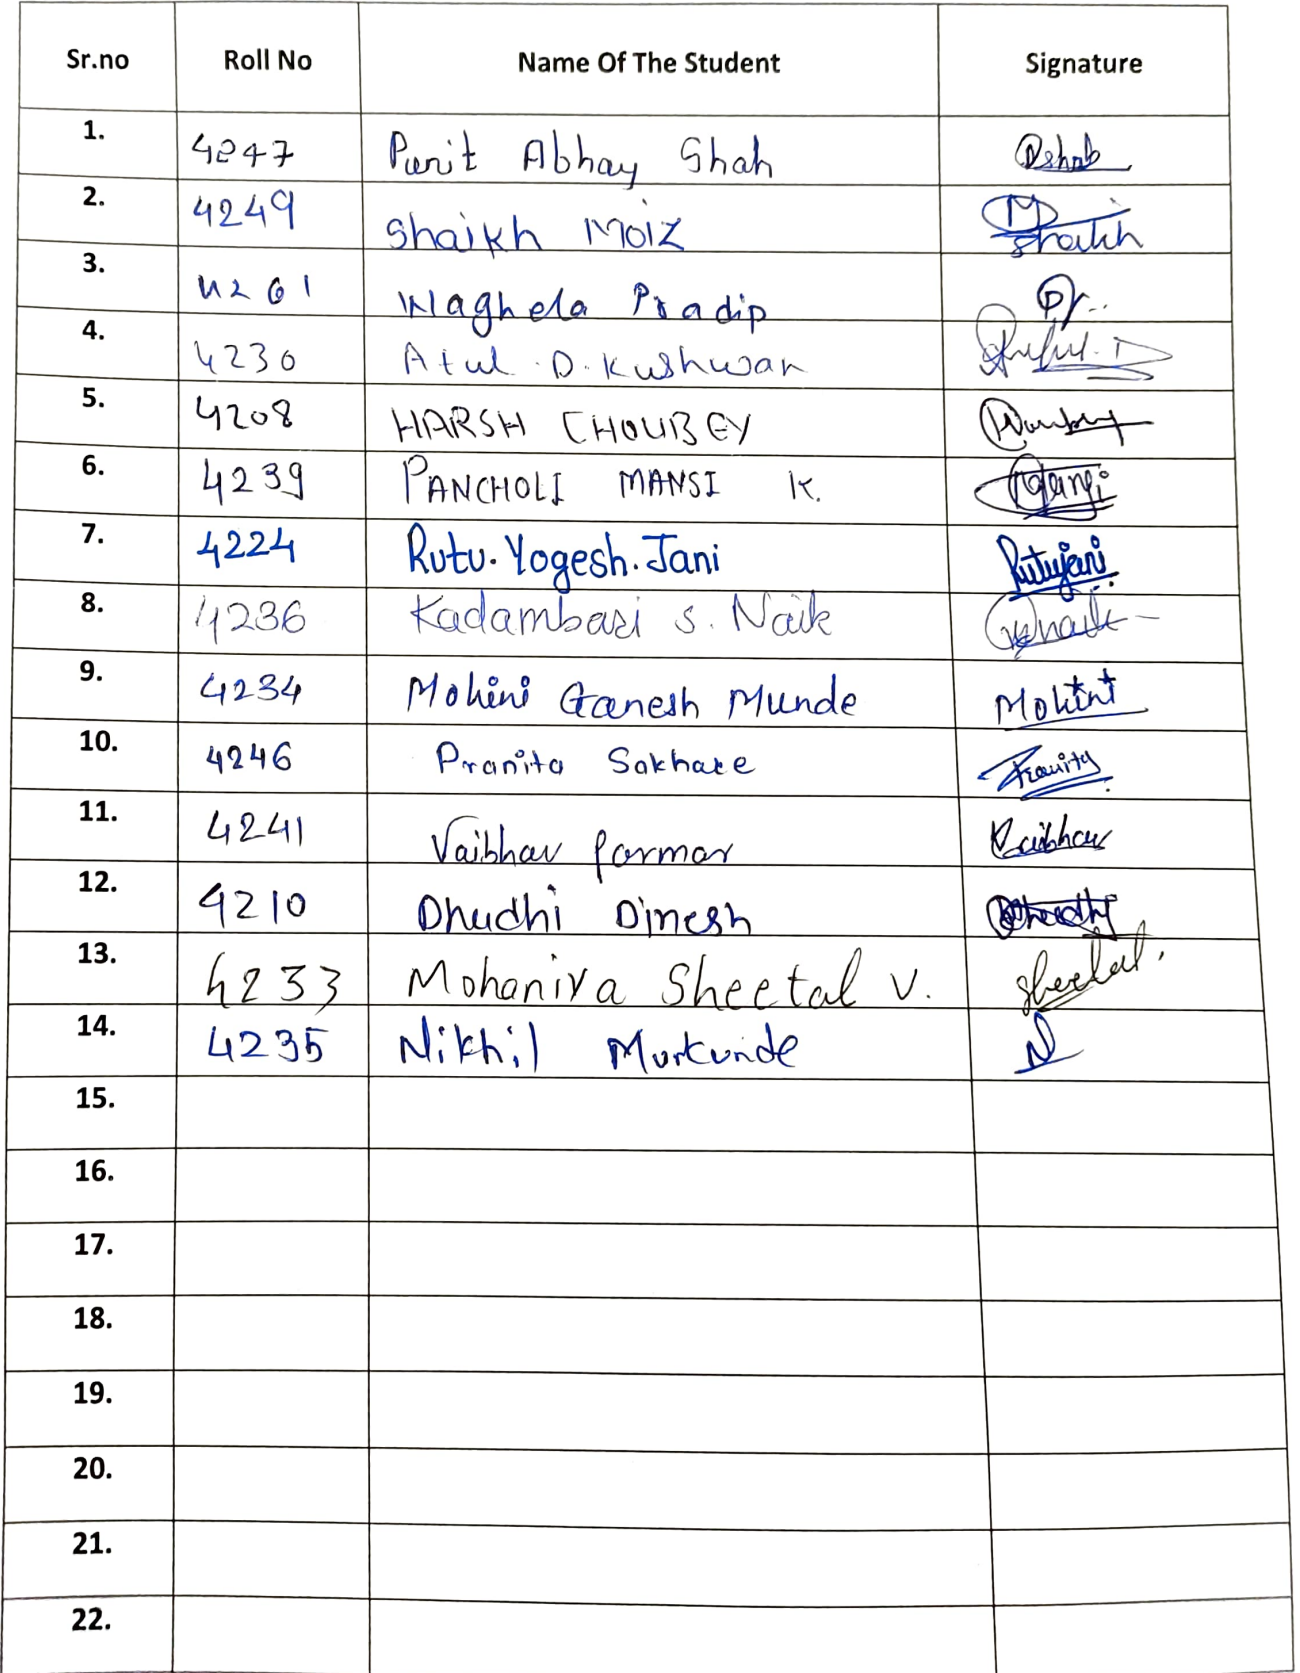 Sr.no Roll No Name Of The Student Signature
1. 4247 Punit Abhay Shah Pshah
2. 4249 Shaikh Moiz M Shaikh
3. 4261 Waghela Pradip Pr..
4. 4230 Atul .D. Kushwah
5. 4208 HARSH CHOUBEY
6. 4239 PANCHOLI MANSI K.
7. 4224 Rutu. Yogesh. Jani Rutujani.
8. 4236 Kadambari S. Naik
9. 4234 Mohini Ganesh Munde Mohini
10. 4246 Pranita Sakhare Pranita
11. 4241 Vaibhav Parmar Vaibhav
12. 4210 Dhudhi Dinesh Dhudhi
13. 4233 Mohaniya Sheetal V. Sheetal.
14. 4235 Nikhil Murkunde N
15.
16.
17.
18.
19.
20.
21.
22.